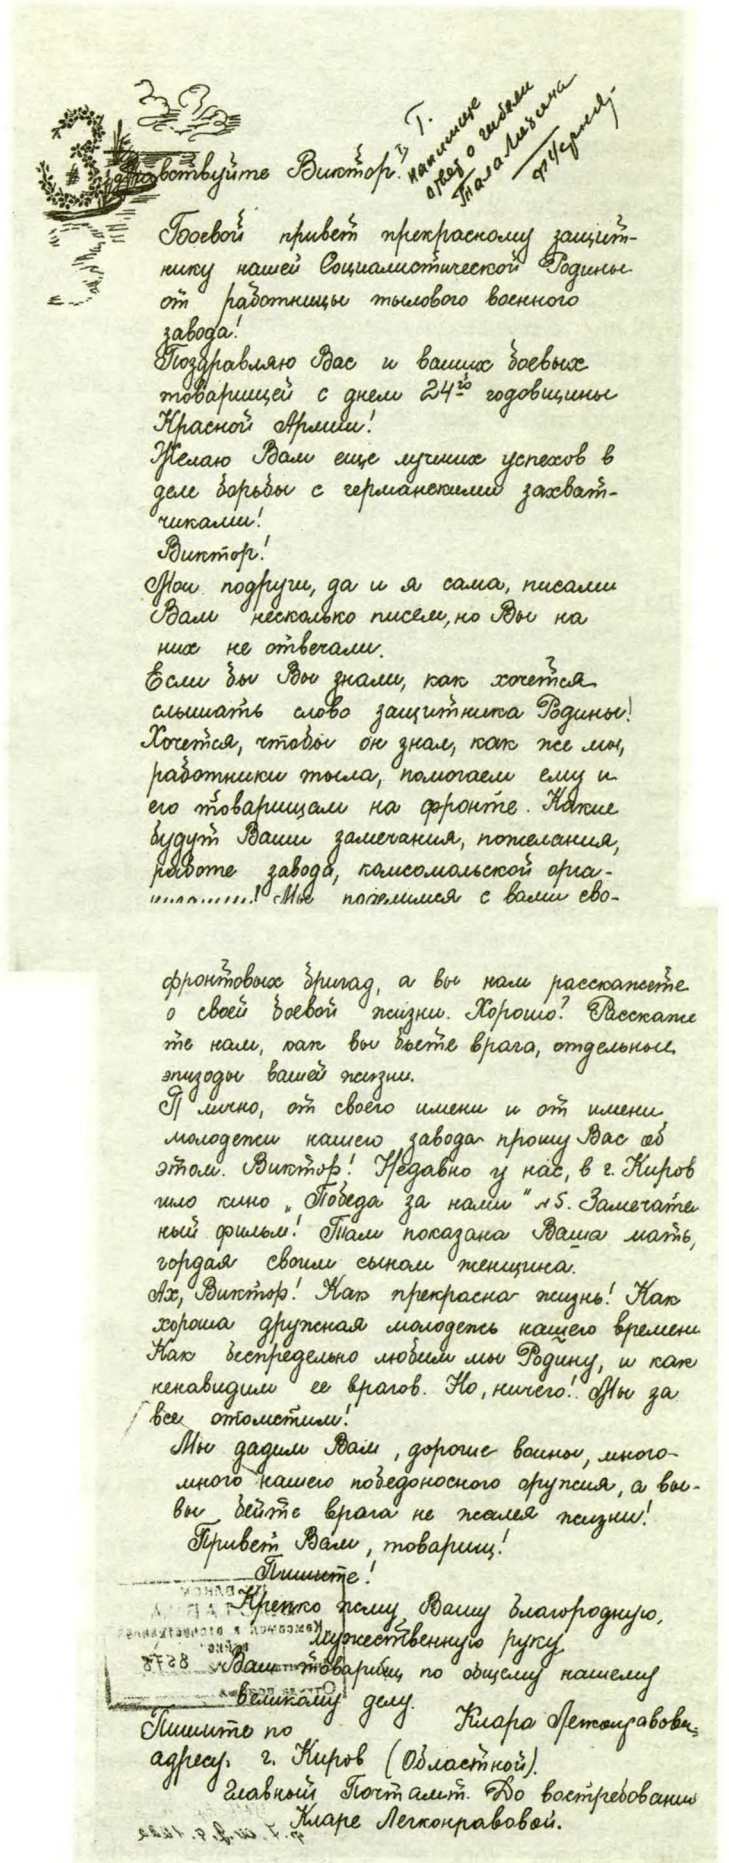 Здравствуйте Виктор!
Т.
напишите
ответ о гибели
Талалихина
Боевой привет прекрасному защит-
нику нашей Социалистической Родины
от работницы тылового военного
завода!
Поздравляю Вас и ваших боевых
товарищей с днем 24го годовщины
Красной Армии!
Желаю Вам еще лучших успехов в
деле борьбы с германскими захват-
чиками!
Виктор!
Мои подруги, да и я сама, писали
Вам несколько писем, но Вы на
них не отвечали.
Если бы Вы знали, как хочется
слышать слово защитника Родины!
Хочется, чтобы он знал, как же мы,
работники тыла, помогаем ему и
его товарищам на фронте. Какие
будут Ваши замечания, пожелания,
работе завода, комсомольской орга-
низации! Мы поделимся с вами сво-
фронтовых бригад, а вы нам расскажете
о своей боевой жизни. Хорошо? Расскажи
те нам, как вы бьете врага, отдельные
эпизоды вашей жизни.
Я лично, от своего имени и от имени
молодежи нашего завода прошу Вас об
этом. Виктор! Недавно у нас, в г. Киров
шло кино „Победа за нами" №5. Замечате
ный фильм! Там показана Ваша мать,
гордая своим сыном женщина.
Ах, Виктор! Как прекрасна жизнь! Как
хороша дружная молодежь нашего времени
Как беспредельно любим мы Родину, и как
ненавидим ее врагов. Но, ничего! Мы за
все отомстим!
Мы дадим Вам, дорогие воины, много-
много нашего победоносного оружия, а вы-
вы бейте врага не жалея жизни!
Привет Вам, товарищ!
Пишите!
Крепко жму Вашу благородную,
мужественную руку
Ваш товарищ по общему нашему
великому делу.
Клара Легконравова
Пишите по
адресу: г. Киров (Областной).
Главный Почтамт. До востребования
Кларе Легконравовой.
8578